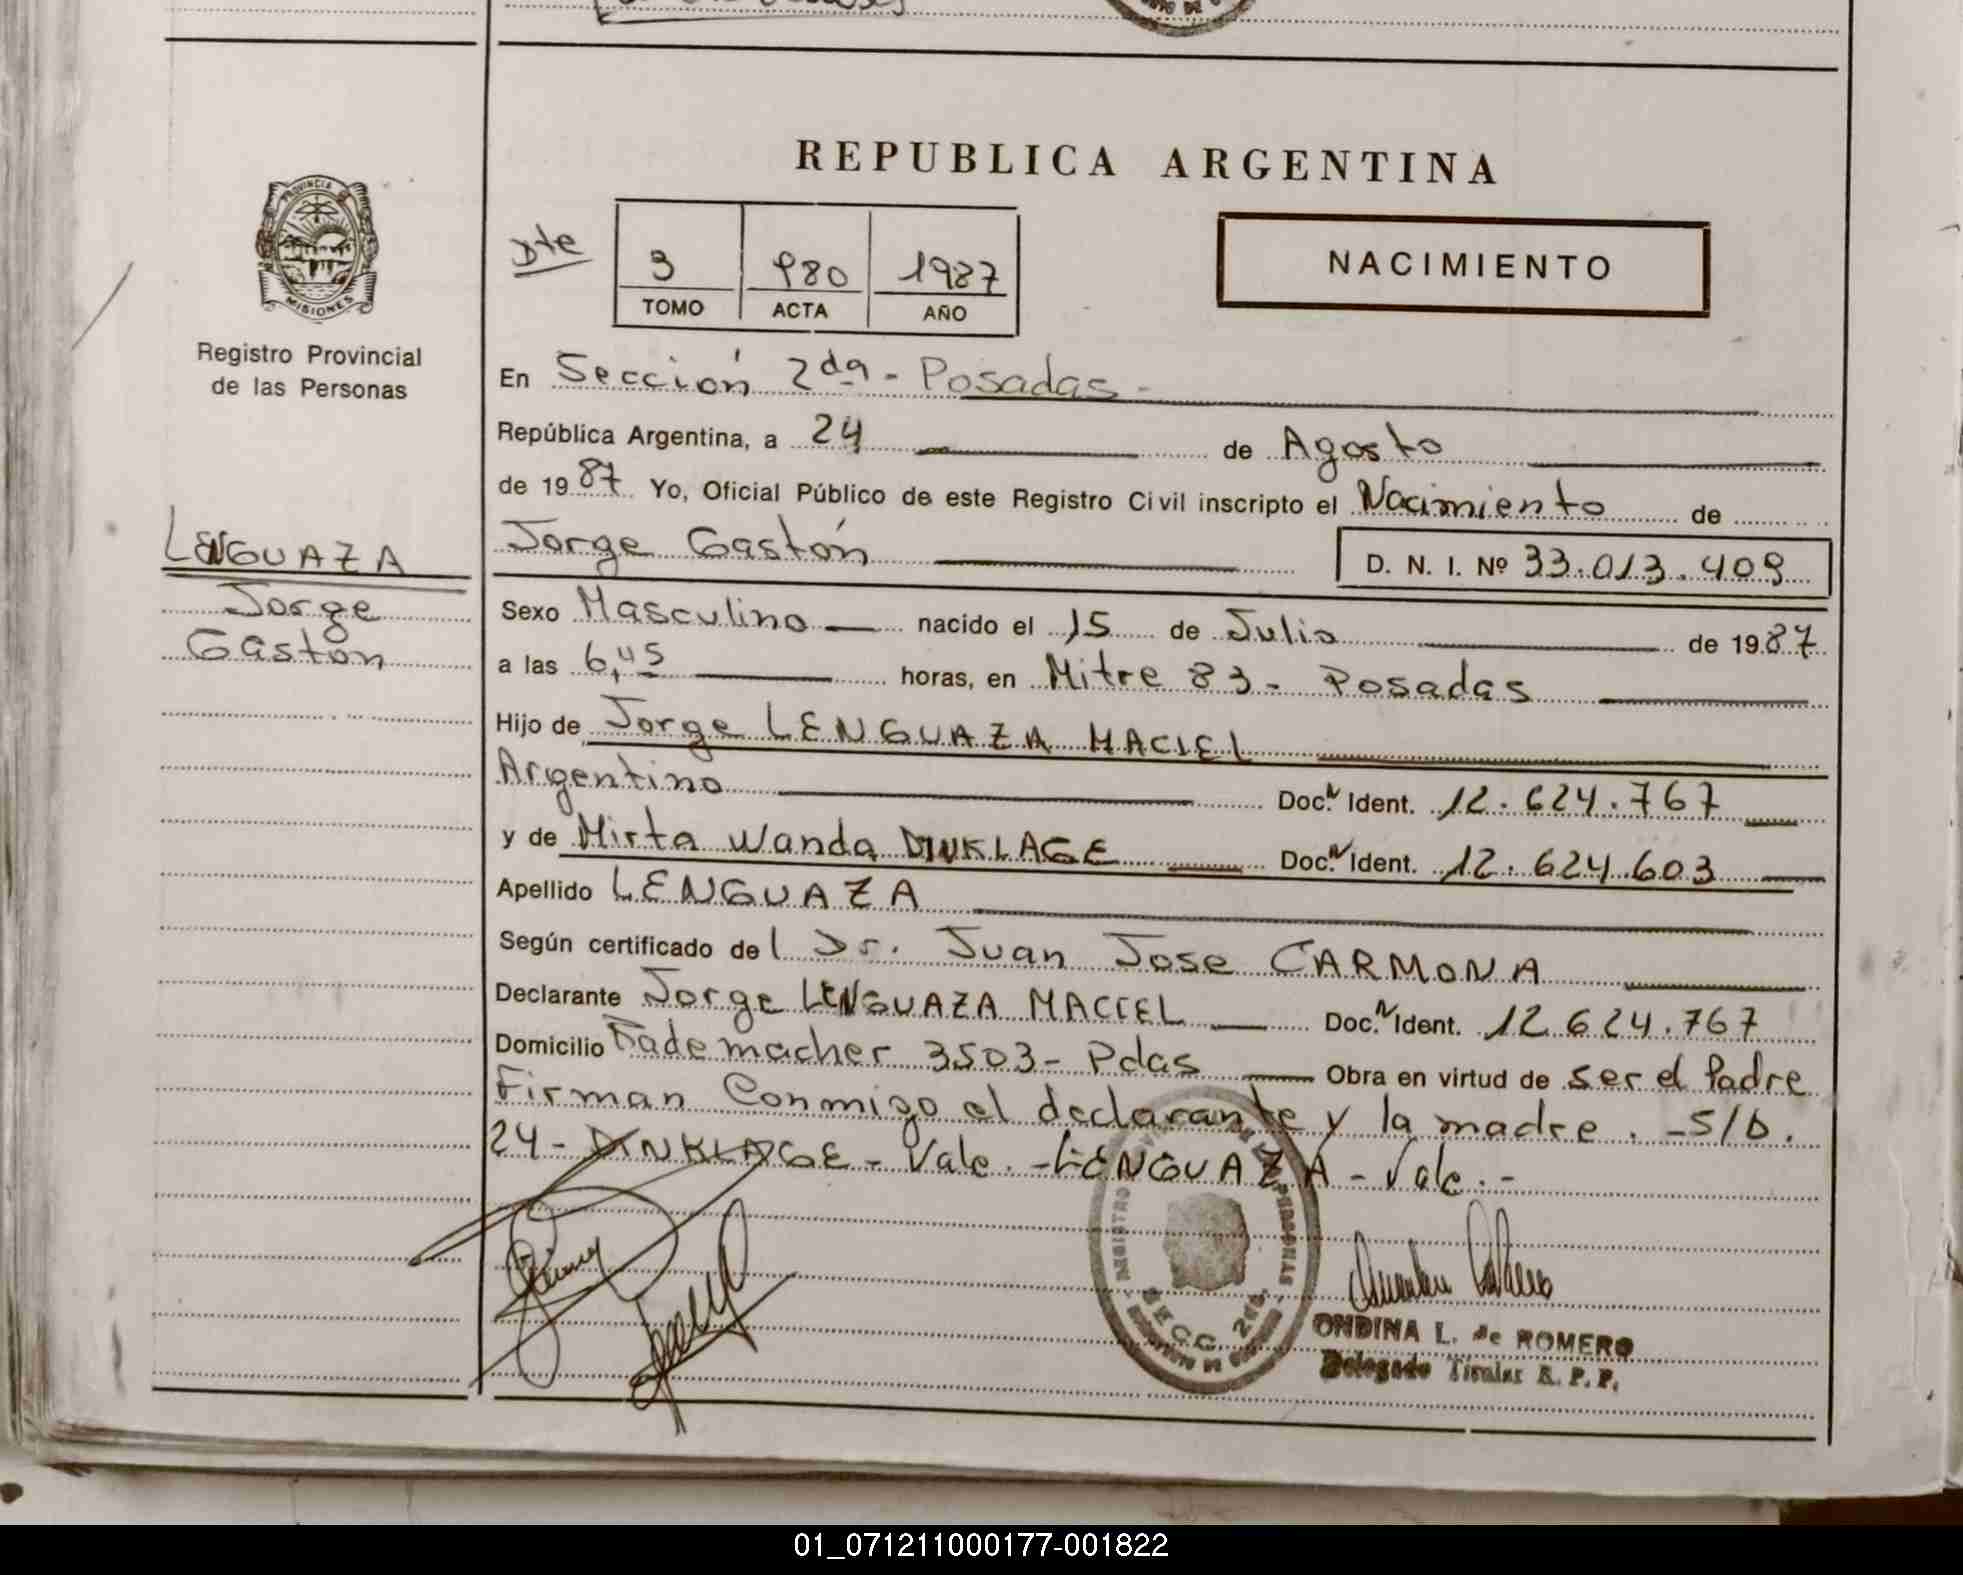 REPUBLICA ARGENTINA
PROVINCIA
MISIONES
Registro Provincial
de las Personas
Dte
3 980 1987
TOMO ACTA AÑO
NACIMIENTO
En Sección 2da - Posadas -
República Argentina, a 24 de Agosto
de 1987 Yo, Oficial Público de este Registro Civil inscripto el Nacimiento de
LENGUAZA
Jorge
Gastón
Jorge Gastón D. N. I. Nº 33.013.409
Sexo Masculino nacido el 15 de Julio de 1987
a las 6,45 horas, en Mitre 83 - Posadas
Hijo de Jorge LENGUAZA MACIEL
Argentino Doc. N Ident. 12.624.767
y de Mirta Wanda DINKLAGE Doc. N Ident. 12.624.603
Apellido LENGUAZA
Según certificado del Dr. Juan Jose CARMONA
Declarante Jorge LENGUAZA MACIEL Doc. N Ident. 12.624.767
Domicilio Rademacher 3503 - Pdas Obra en virtud de ser el Padre
Firman Conmigo el declarante y la madre. - S/b.
24 - DINKLAGE - Vale. - LENGUAZA - Vale. -
REGISTRO DE LAS PERSONAS
SECC. 2da.
ONDINA L. de ROMERO
Delegado Titular R. P. P.
01_071211000177-001822